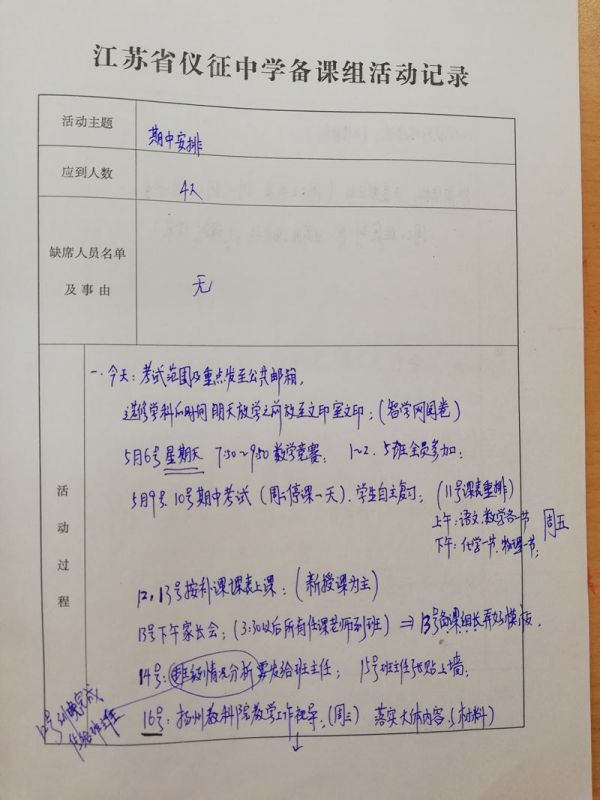 江苏省仪征中学备课组活动记录
活动主题
期中安排
应到人数
4人
缺席人员名单
及事由
无
活动过程
一.今天:考试范围及重点发至公共邮箱,
选修学科 时间 明天放学之前放至文印室文印;(智学网阅卷)
5月6号星期天 7:50~9:50数学竞赛; 1~2.5班全员参加;
5月9号.10号期中考试(周二停课一天).学生自主复习;(11号课表重排)
上午:语文.数学各一节
下午:化学一节.物理一节;
周五
12,13号按补课课表上课:(新授课为主)
13号下午家长会;(3:30以后所有任课老师到班)⇒13号备课组长弄好模板.
14号:班级情况分析要发给班主任; 15号班主任 贴上墙;
16号:扬州教科院教学工作视导,(周三) 落实大体内容.(材料)
12号 完成
发给班主任